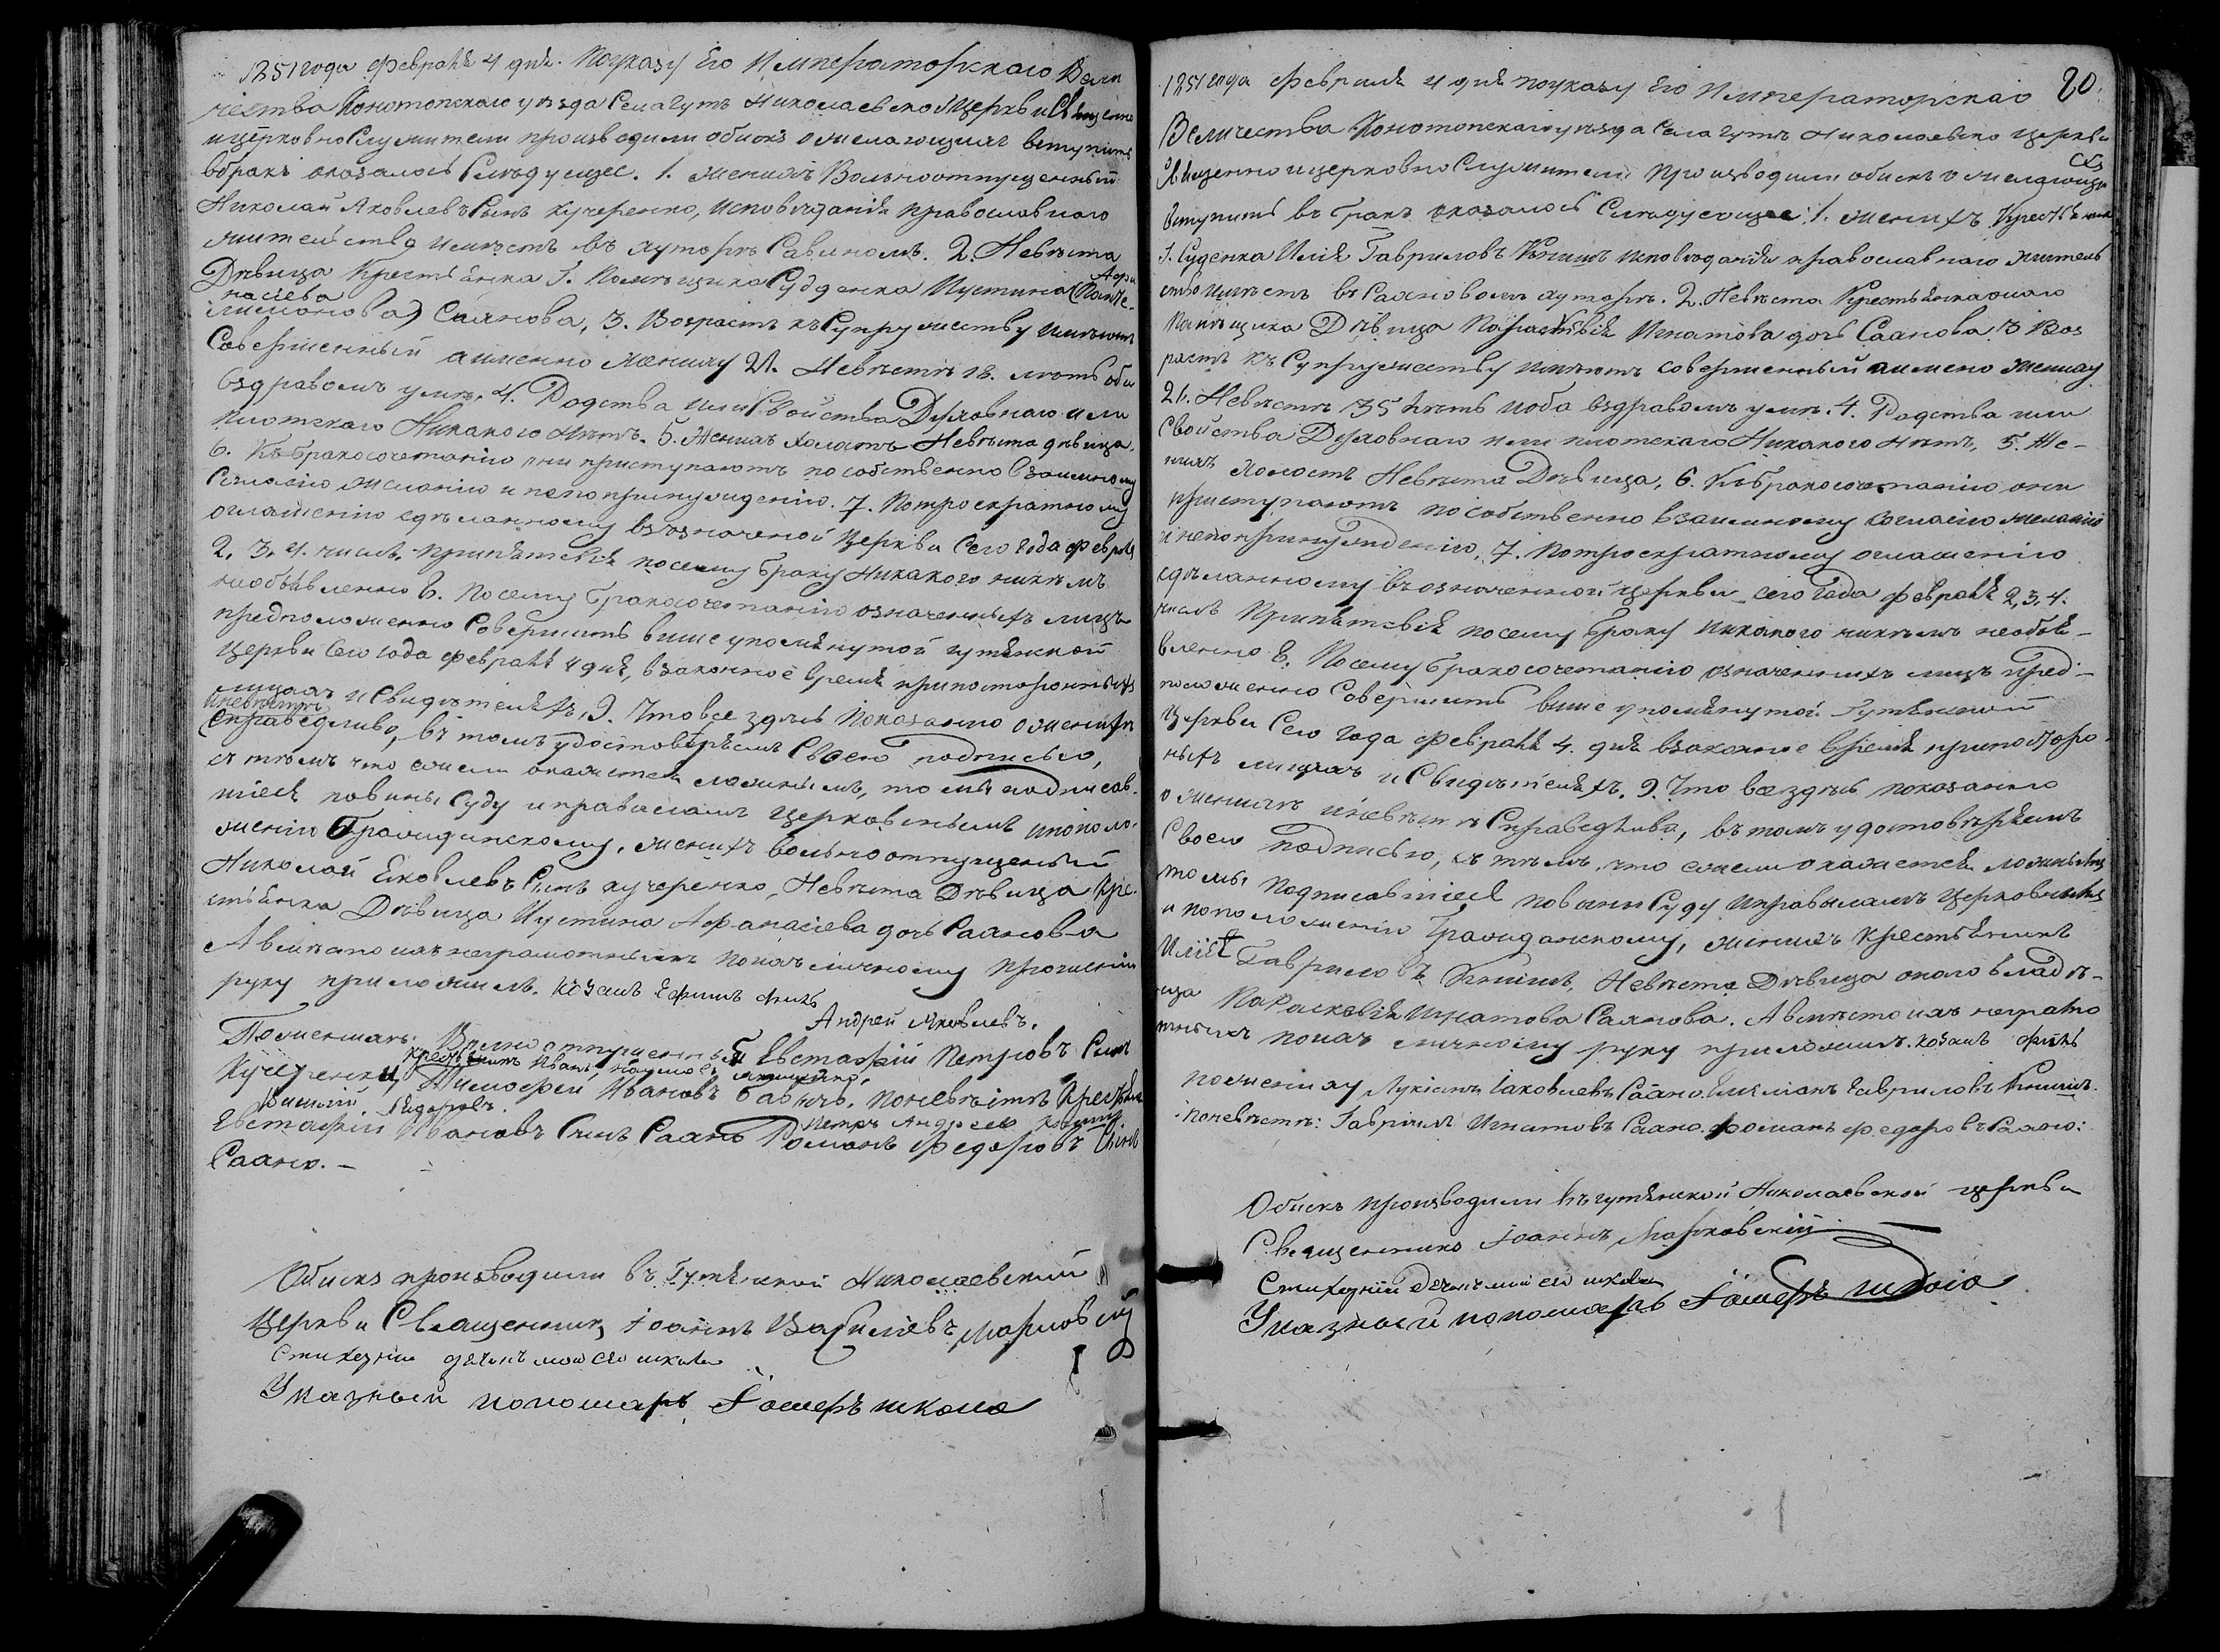 1851 года Февраля 4 дня. По указу Его Императорскаго Вели
чества Конотопскаго уезда Села Гутъ Николаевской Церкви Священно
и церковно Служители производили обискъ о желающихъ вступить
вбракъ оказалось Следующее. 1. женихъ Вольноотпущенный
Николай Яковлевъ Сынъ Кучеренко, исповеданія православнаго
жительство имеетъ въ хуторе Савиномъ. 2. Невеста
Девица Крестьянка Г. Помещика Судденка Иустина Афа
насіева
Саянова, 3. Возрастъ къ Супружеству имеютъ
Совершенный а именно жениху 21. Невесте 18. летъ оба
вздравомъ уме. 4. Родства или Свойства Духовнаго или
плотскаго Никакого нетъ. 5. Женихъ холостъ Невеста девица.
6. Къ бракосочетанію они приступаютъ по собственно взаимному
Согласію желанію и непопринужденію. 7. Потроекратному
оглашенію сделанному въ означеной Церкви Сего Года февраля
2. 3. 4. числъ. препятствія посему браку Никакого никемъ
необъявленно 8. Посему бракосочетанію означенныхъ лицъ
предположенно Совершить вышеупомянутой гутянской
Церкви Сего года февраля 4 дня, взаконное время припостороннихъ
лицахъ и Свидетеляхъ, 9. Что все здесь показанно о женихе
и невесте
Справедливо, въ томъ удостоверяемъ Своею подписью,
съ темъ что ежели окажется ложнымъ, то мы подписав
шіеся повины Суду и правиламъ Церковнымъ и пополо
женію Гражданскому, женихъ вольноотпущеный
Николай Яковлевъ Сынъ кучеренко, Невеста Девица Кре
стьянка Девица Иустина Афанасіева дочь Саанова
А вместо ихъ неграмотныхъ поихъ личному прошенію
руку приложилъ. козакъ Ефимъ
Андрей Яковлевъ.
По женихе: Вольноотпущенный Евстафій Петровъ Сынъ
Крестьянинъ Иванъ
Кучеренко, Тимофей Ивановъ Бабичъ. поневесте Крестьян
Федоровъ.
Петръ Андреевъ
Евстафій Ивановъ Сынъ Саанъ Романъ Федоровъ Сынъ
Саанъ. —
Обискъ производили въ Гутянской Николаевской
Церкви Священникъ Іоаннъ Василіевъ Марковскій
Стихарный дячокъ
Указный пономарь школа
20.
1851 года Февраля 4 дня по указу Его Императорскаго
Величества Конотопскаго уезда Села Гутъ Николаевско Церкви
Священно и церковно Служители производили обискъ о желающих
вступить въ бракъ оказалось Следующее: 1. женихъ Крестьянинъ
Г. Суденка Илія Гавриловъ Книшъ исповеданія православнаго житель
ство имеетъ въ Саановомъ хуторе. 2. Невеста Крестьянка онаго
Помещика Девица Параскевія Игнатова дочь Саанова 3 Воз
растъ къ Супружеству имеютъ совершенный а имено жениху
21. Невесте 35 летъ иоба вздравомъ уме. 4. Родства или
Свойства Духовнаго или плотскаго Никакого нетъ, 5. Же-
нихъ холостъ Невеста Девица, 6. Къ бракосочетанію они
приступаютъ по собственно взаимному согласію желанію
и непопринужденію, 7. Потроекратному оглашенію
сделанному въ означенной Церкви сего года февраля 2, 3, 4.
числъ препятствія посему браку никакого никемъ необъя-
вленно 8. Посему бракосочетанію означенныхъ лицъ пред-
положенно Совершить вышеупомянутой Гутянской
Церкви Сего Года февраля 4. дня взаконное время припосторо
ныхъ лицахъ и Свидетеляхъ. 9. Что все здесь показанно
о женихе и невесте Справедливо, въ томъ удостоверяемъ
Своею подписью, съ темъ, что ежели окажется ложнымъ
то мы Подписавшіеся повины Суду и правиламъ Церковнымъ
и поположенію Гражданскому, женихъ крестьянинъ
Илія Гавриловъ Книшъ, Невеста Девица оного владе-
ца Параскевія Игнатова Саанова. А вместо ихъ неграмо
тныхъ поихъ личному руку приложилъ. козакъ
по жениху Лукіанъ Іаковлевъ Саано. Еміліанъ Гавриловъ Книшъ.
поневесте: Гавріилъ Игнатовъ Саано. Романъ Федоровъ Саано:
Обискъ производили въ гутянской Николаевской церкви
Священникъ Іоаннъ Марковскій
Стихарный дячокъ
Указный пономарь школа